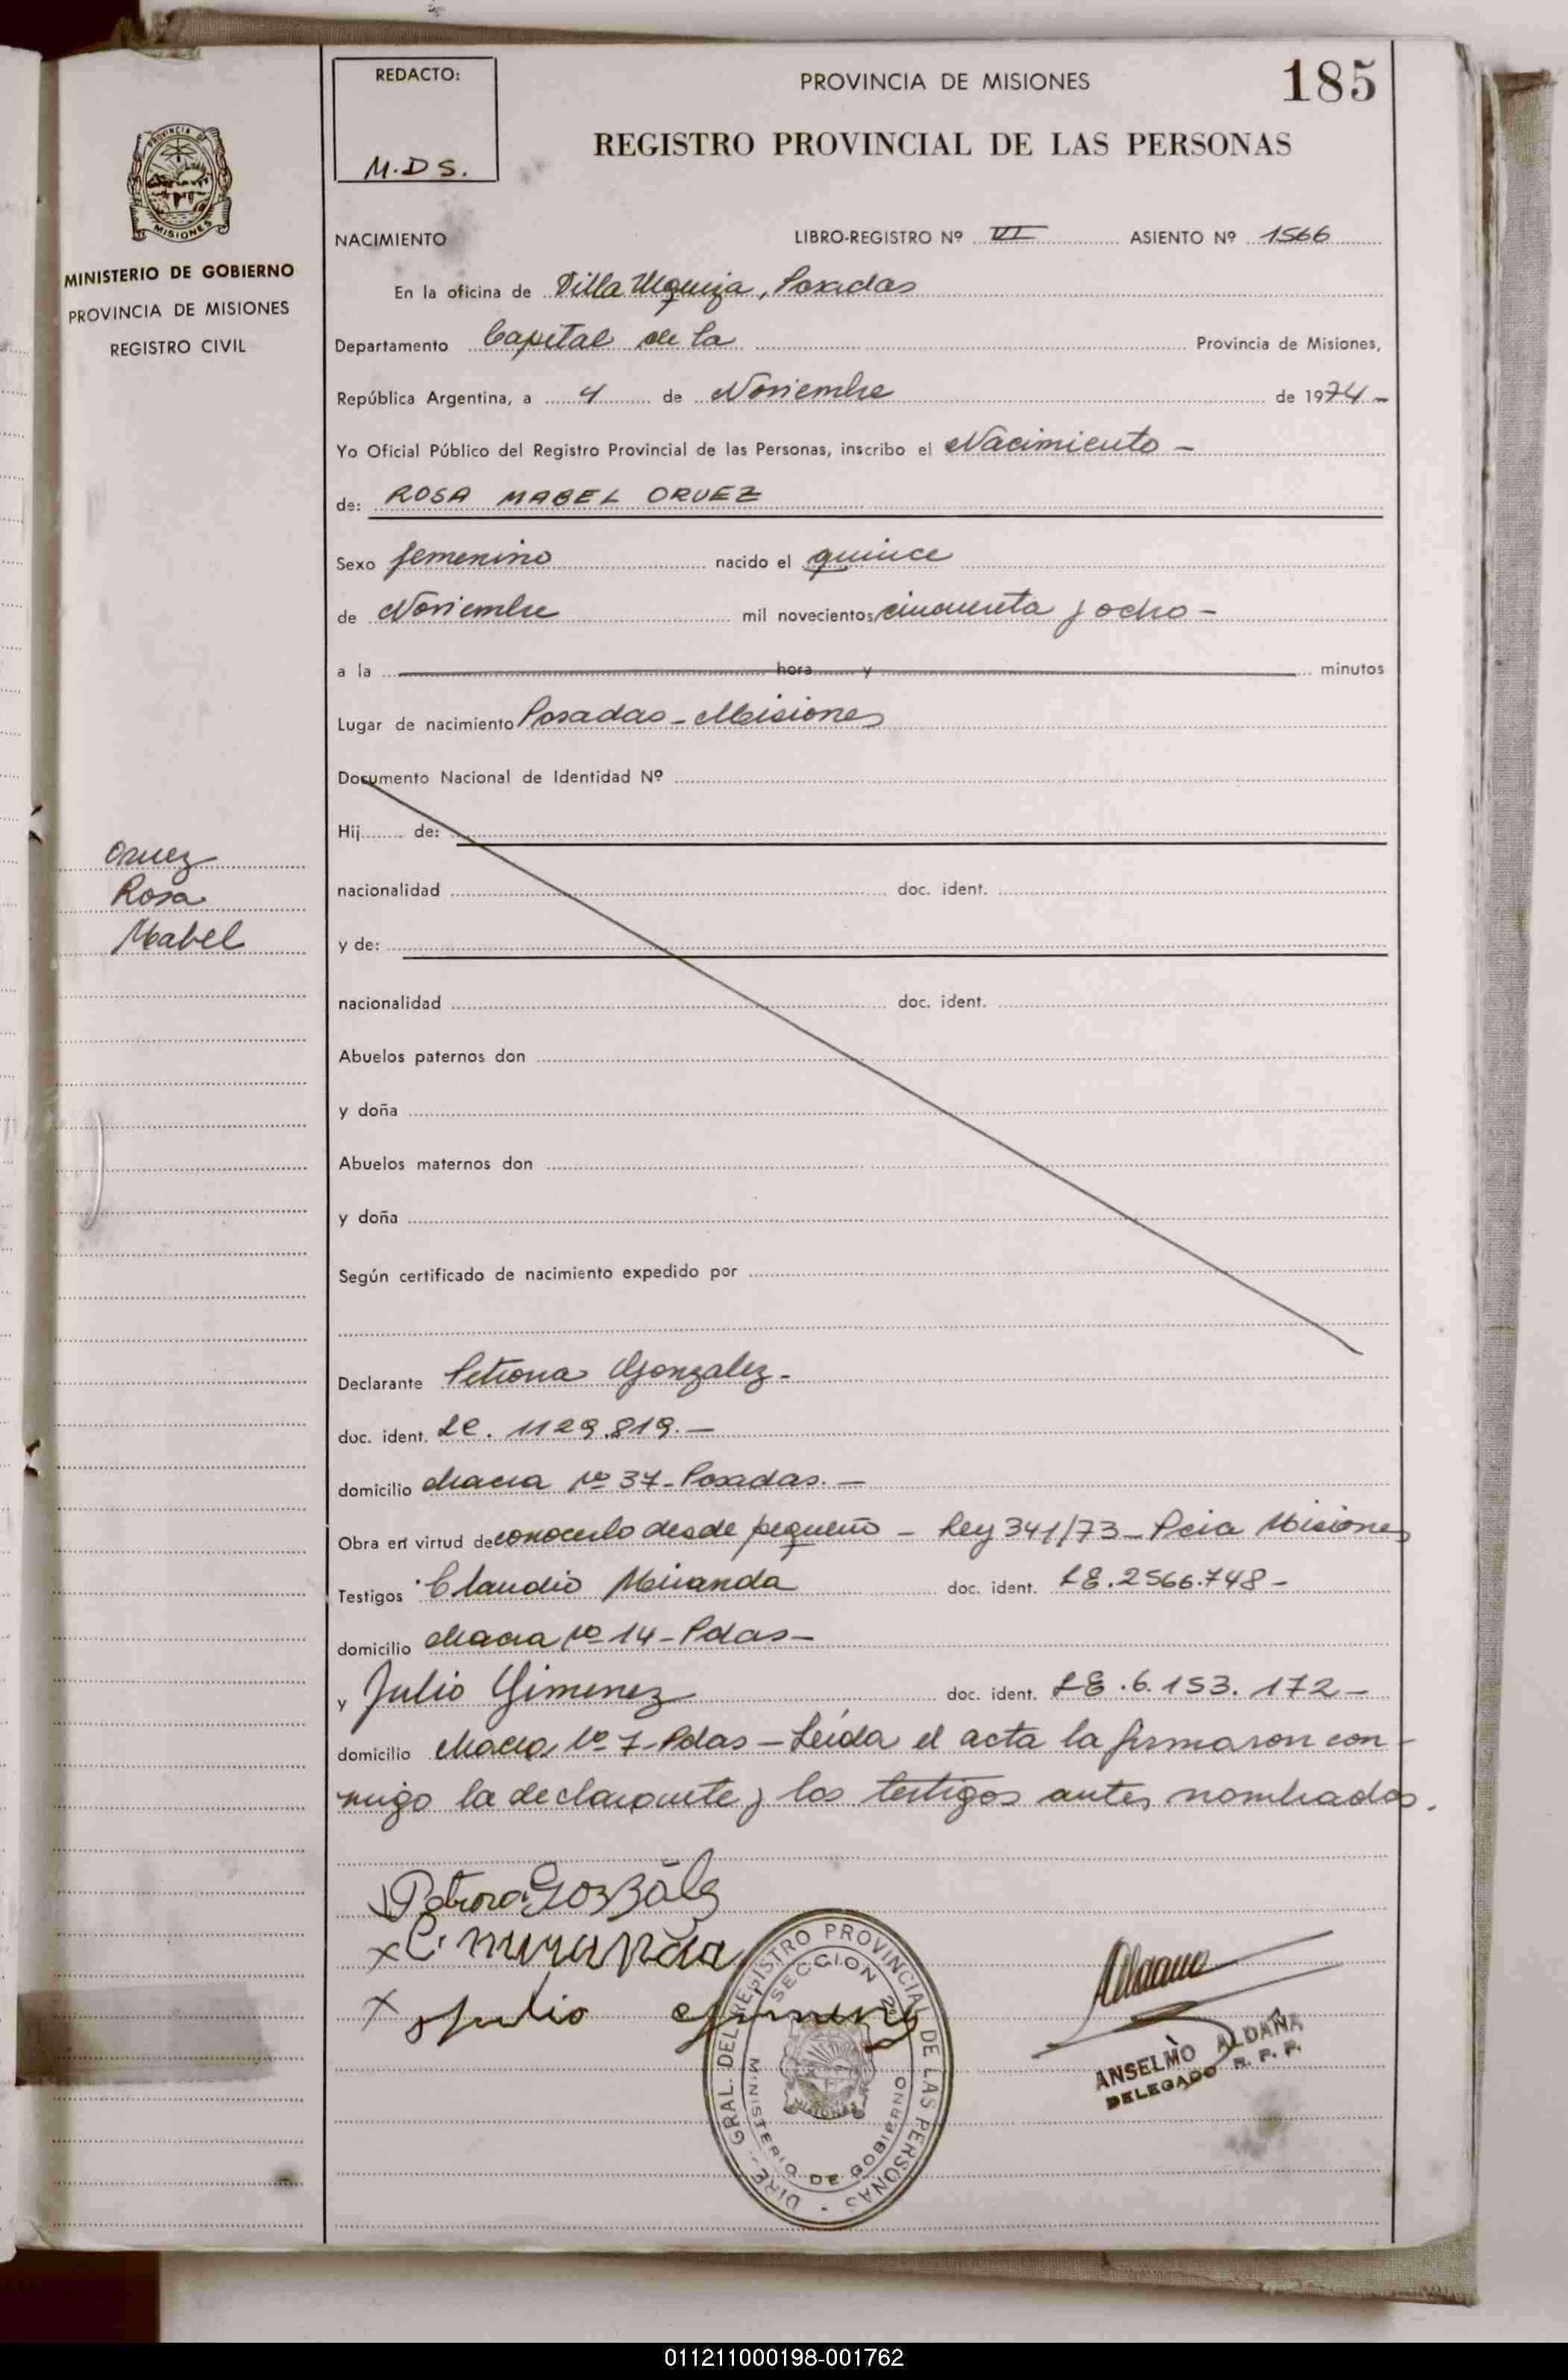 REDACTO:
M.D S.
PROVINCIA DE MISIONES
185
REGISTRO PROVINCIAL DE LAS PERSONAS
PROVINCIA DE
MISIONES
MINISTERIO DE GOBIERNO
PROVINCIA DE MISIONES
REGISTRO CIVIL
NACIMIENTO LIBRO-REGISTRO Nº VI ASIENTO Nº 1566
En la oficina de Villa Urquiza, Posadas
Departamento Capital de la Provincia de Misiones,
República Argentina, a 4 de Noviembre de 1974-
Yo Oficial Público del Registro Provincial de las Personas, inscribo el Nacimiento -
de: ROSA MABEL ORUEZ
Sexo femenino nacido el quince
de Noviembre mil novecientos cincuenta y ocho -
a la hora y minutos
Lugar de nacimiento Posadas - Misiones
Documento Nacional de Identidad Nº
Hij de:
Oruez
Rosa
Mabel
nacionalidad doc. ident.
y de:
nacionalidad doc. ident.
Abuelos paternos don
y doña
Abuelos maternos don
y doña
Según certificado de nacimiento expedido por
Declarante Petrona Gonzalez -
doc. ident. LC. 1129.819. -
domicilio chacra Nº 37 - Posadas. -
Obra en virtud de conocerlo desde pequeño - Ley 341/73 - Pcia Misiones
Testigos Claudio Miranda doc. ident. LE. 2566.748 -
domicilio chacra Nº 14 - Pdas -
y Julio Gimenez doc. ident. LE. 6.153.172 -
domicilio chacra Nº 7 - Pdas - Leída el acta la firmaron con-
migo la declarante y los testigos antes nombrados.
Petrona Gonzalez
x C. miranda
x Julio Gimenez
DIRE. GRAL. DEL REGISTRO PROVINCIAL DE LAS PERSONAS -
SECCION 2ª
MINISTERIO DE GOBIERNO
MISIONES
ANSELMO ALDAÑA
DELEGADO R. P. P.
011211000198-001762